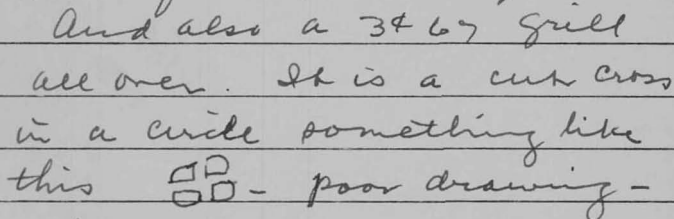 And also a 3¢ 67 grill
all over. It is a cut cross
in a circle something like
this - poor drawing -